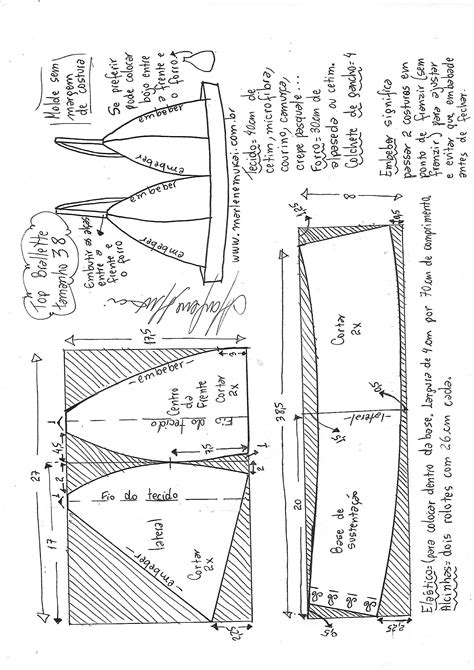 Top Brallette
tamanho 38
Molde sem
margem
de costura
Se preferir
pode colocar
bojo entre
a frente e
o forro.
Embutir as alças
entre a
frente e
o forro
embeber
embeber
embeber
embeber
www.marlenemukai.com.br
Tecido: 40cm de
cetim, microfibra,
courino, camurça,
crepe pasquale...
Forro= 30cm de
alpaseda ou cetim.
Colchete de gancho= 4
Embeber significa
passar 2 costuras em
ponto de franzir (sem
franzir) para ajustar
e evitar que embabade
antes de fechar.
27
17
2
4,5
1
17,5
3
embeber
Centro
da
frente
Cortar
2x
Fio
do tecido
7,5
1
2
Fio do tecido
lateral
Cortar
2x
embeber
2,5
38,5
20
8
1,25
1,5
Cortar
2x
lateral
0,5
1,5
Base de
sustentação
2,25
0,5
Elástico= (para colocar dentro da base. Largura de 4cm por 70cm de comprimento.
Alcinhas= dois rolotes com 26cm cada.